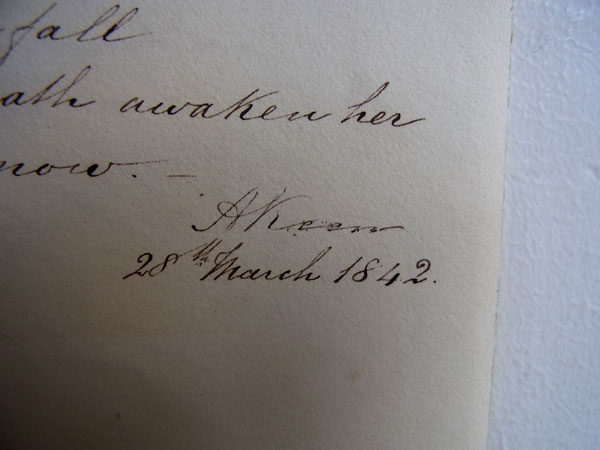 fall
ath awaken her
now. —
AKeen
28th March 1842.